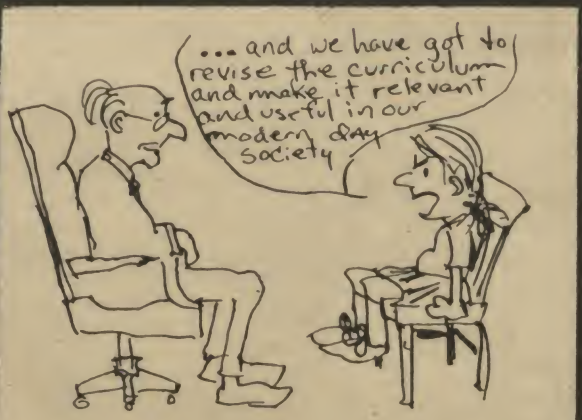 ... and we have got to
revise the curriculum
and make it relevant
and useful in our
modern day
society